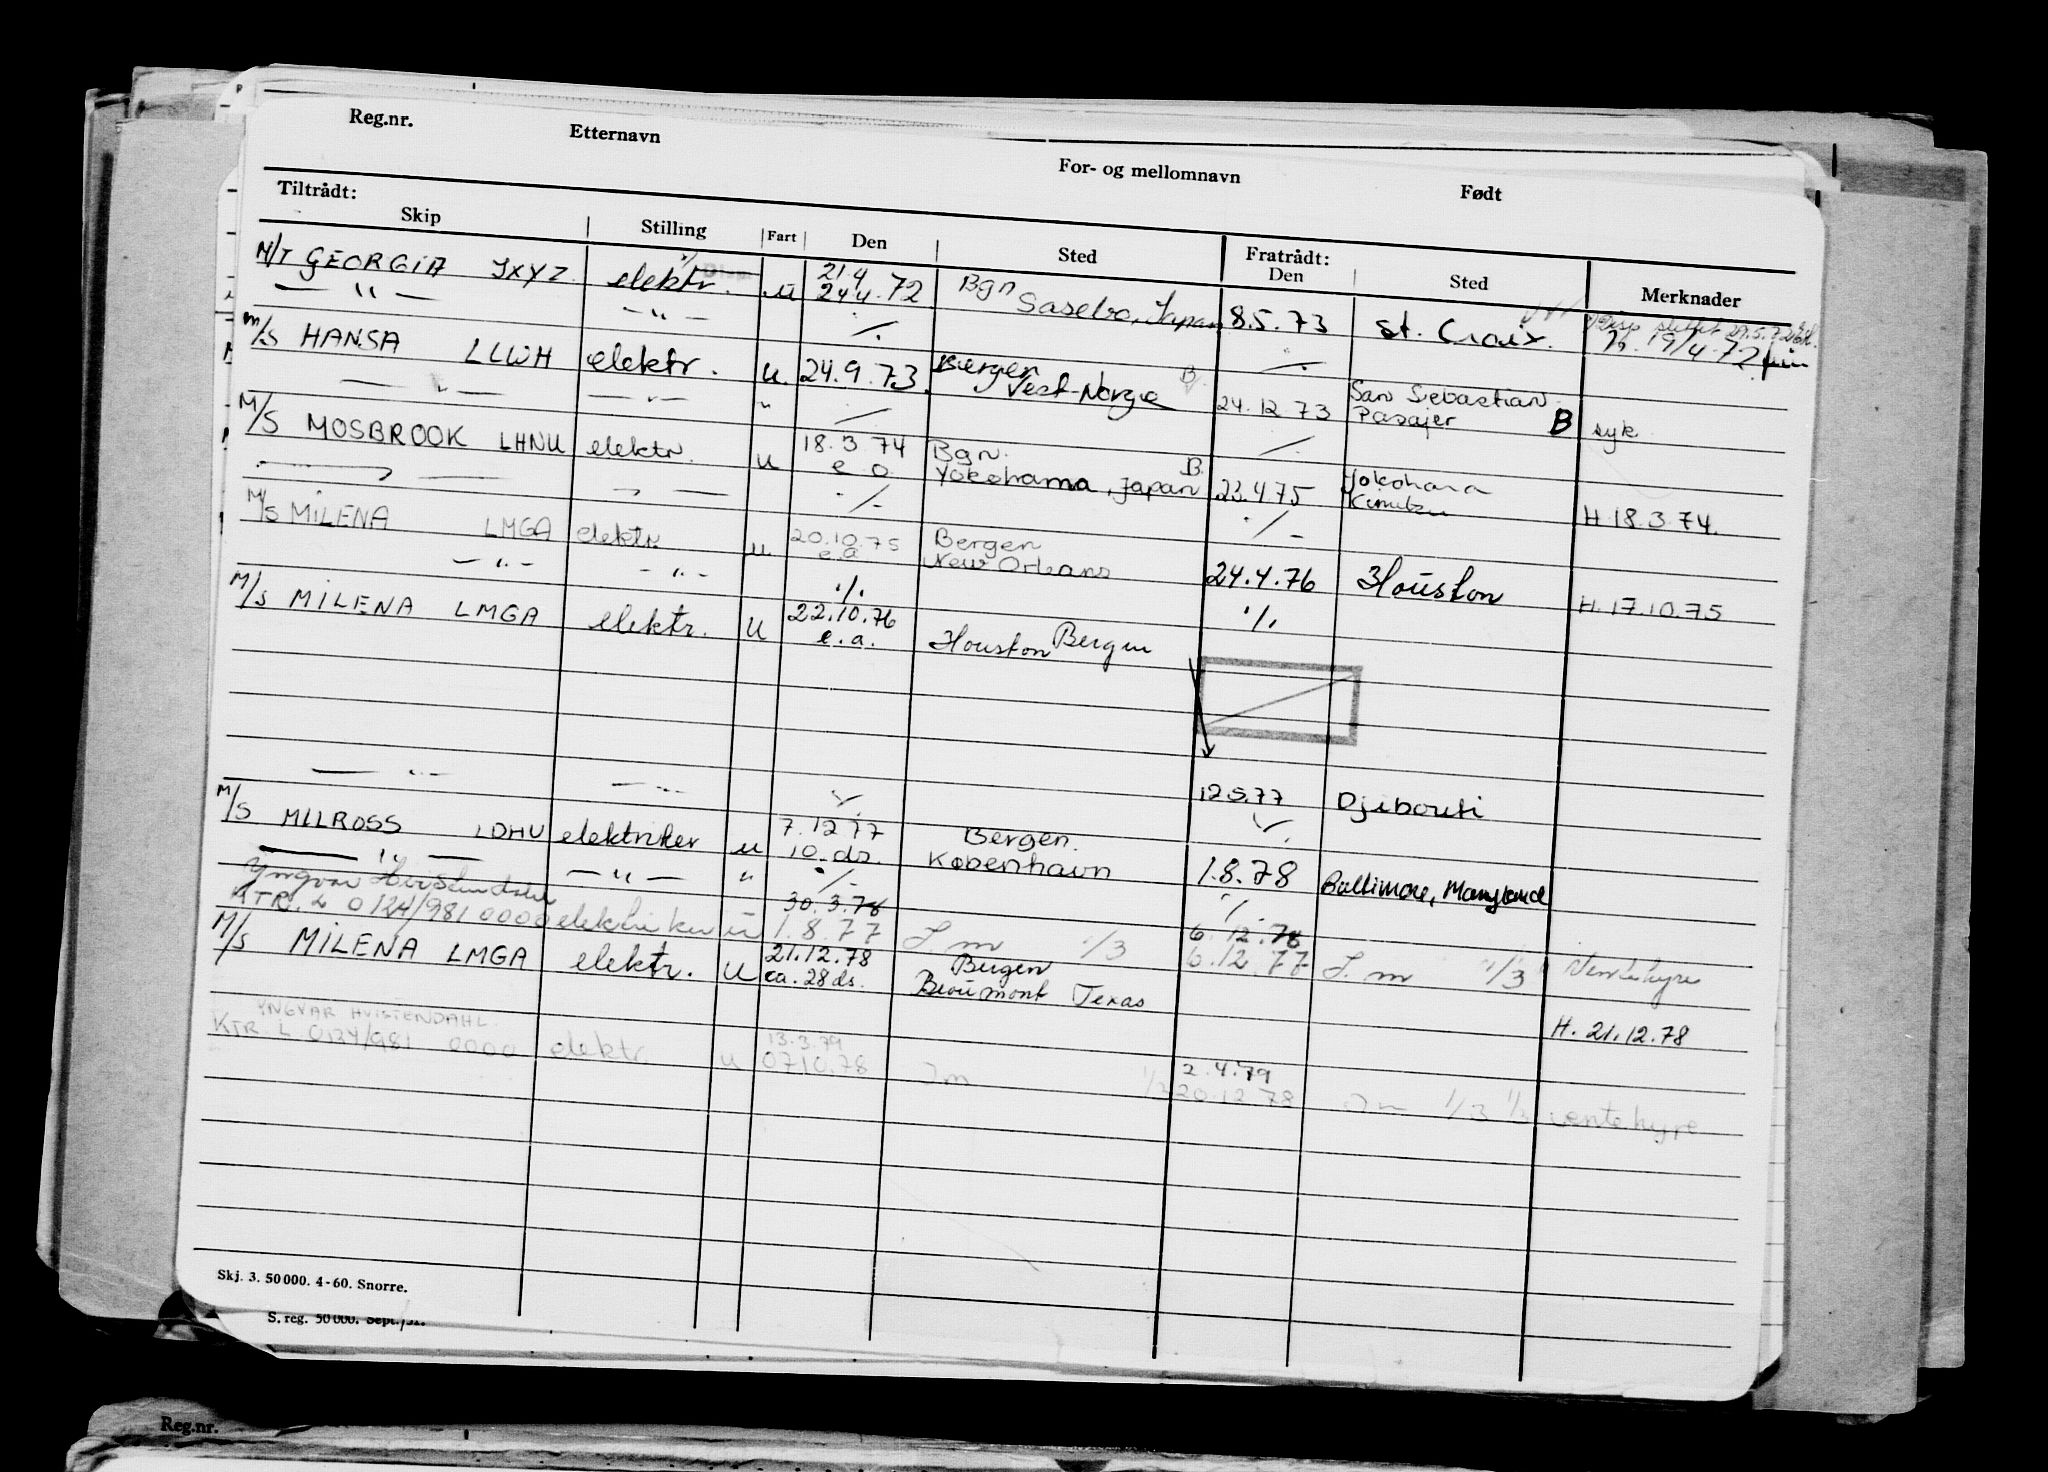 Reg.nr. Etternavn For- og mellomnavn Født
Tiltrådt: Fratrådt:
Skip Stilling Fart Den Sted Den Sted Merknader
M/T GEORGIA JXYZ elektr. u 21.4 24.4.72 Bgn Sasebo, Japan 8.5.73 St. Croix. 19/4-72
— " — — " — ./. ./.
M/S HANSA LLWH elektr. u. 24.9.73. Bergen Vest-Norge B 24.12.73 San Sebastian Pasajer B syk
— " — — " — " ./. ./.
M/S MOSBROOK LHNU elektr. u 18.3.74 e.o. Bgn. Yokohama, Japan B. 23.4.75 Yokohama Kimitsu H. 18.3.74.
— " — — " — ./. ./.
M/S MILENA LMGA elektr. u 20.10.75 e.a Bergen New Orleans 24.4.76 Houston H. 17.10.75
— " — — " — ./. ./.
M/S MILENA LMGA elektr. u 22.10.76 e.a. Houston Bergen
— " — — " — ./. 12.5.77 Djibouti
M/S MILROSS LDHU elektriker u 7.12.77 10. ds. Bergen. København ./. 1.8.78 Baltimore, Maryland
— " — — " — " ./. ./.
Yngvar Hvistendahl 30.3.78 6.12.78
KTR. L 0124/981 0000 elektriker u 1.8.77 I m 1/3 6.12.77 I m 1/3 Ventehyre
M/S MILENA LMGA elektr. u 21.12.78 ca. 28 ds. Bergen Beaumont Texas H. 21.12.78
YNGVAR HVISTENDAHL 13.3.79 2.4.79
KTR. L 0124/981 0000 elektr. u 0710.78 I m 1/3 20.12.78 I m 1/3 1/3 ventehyre
Skj. 3. 50 000. 4-60. Snorre.
S. reg. 50 000. Sept.
Reg.nr.